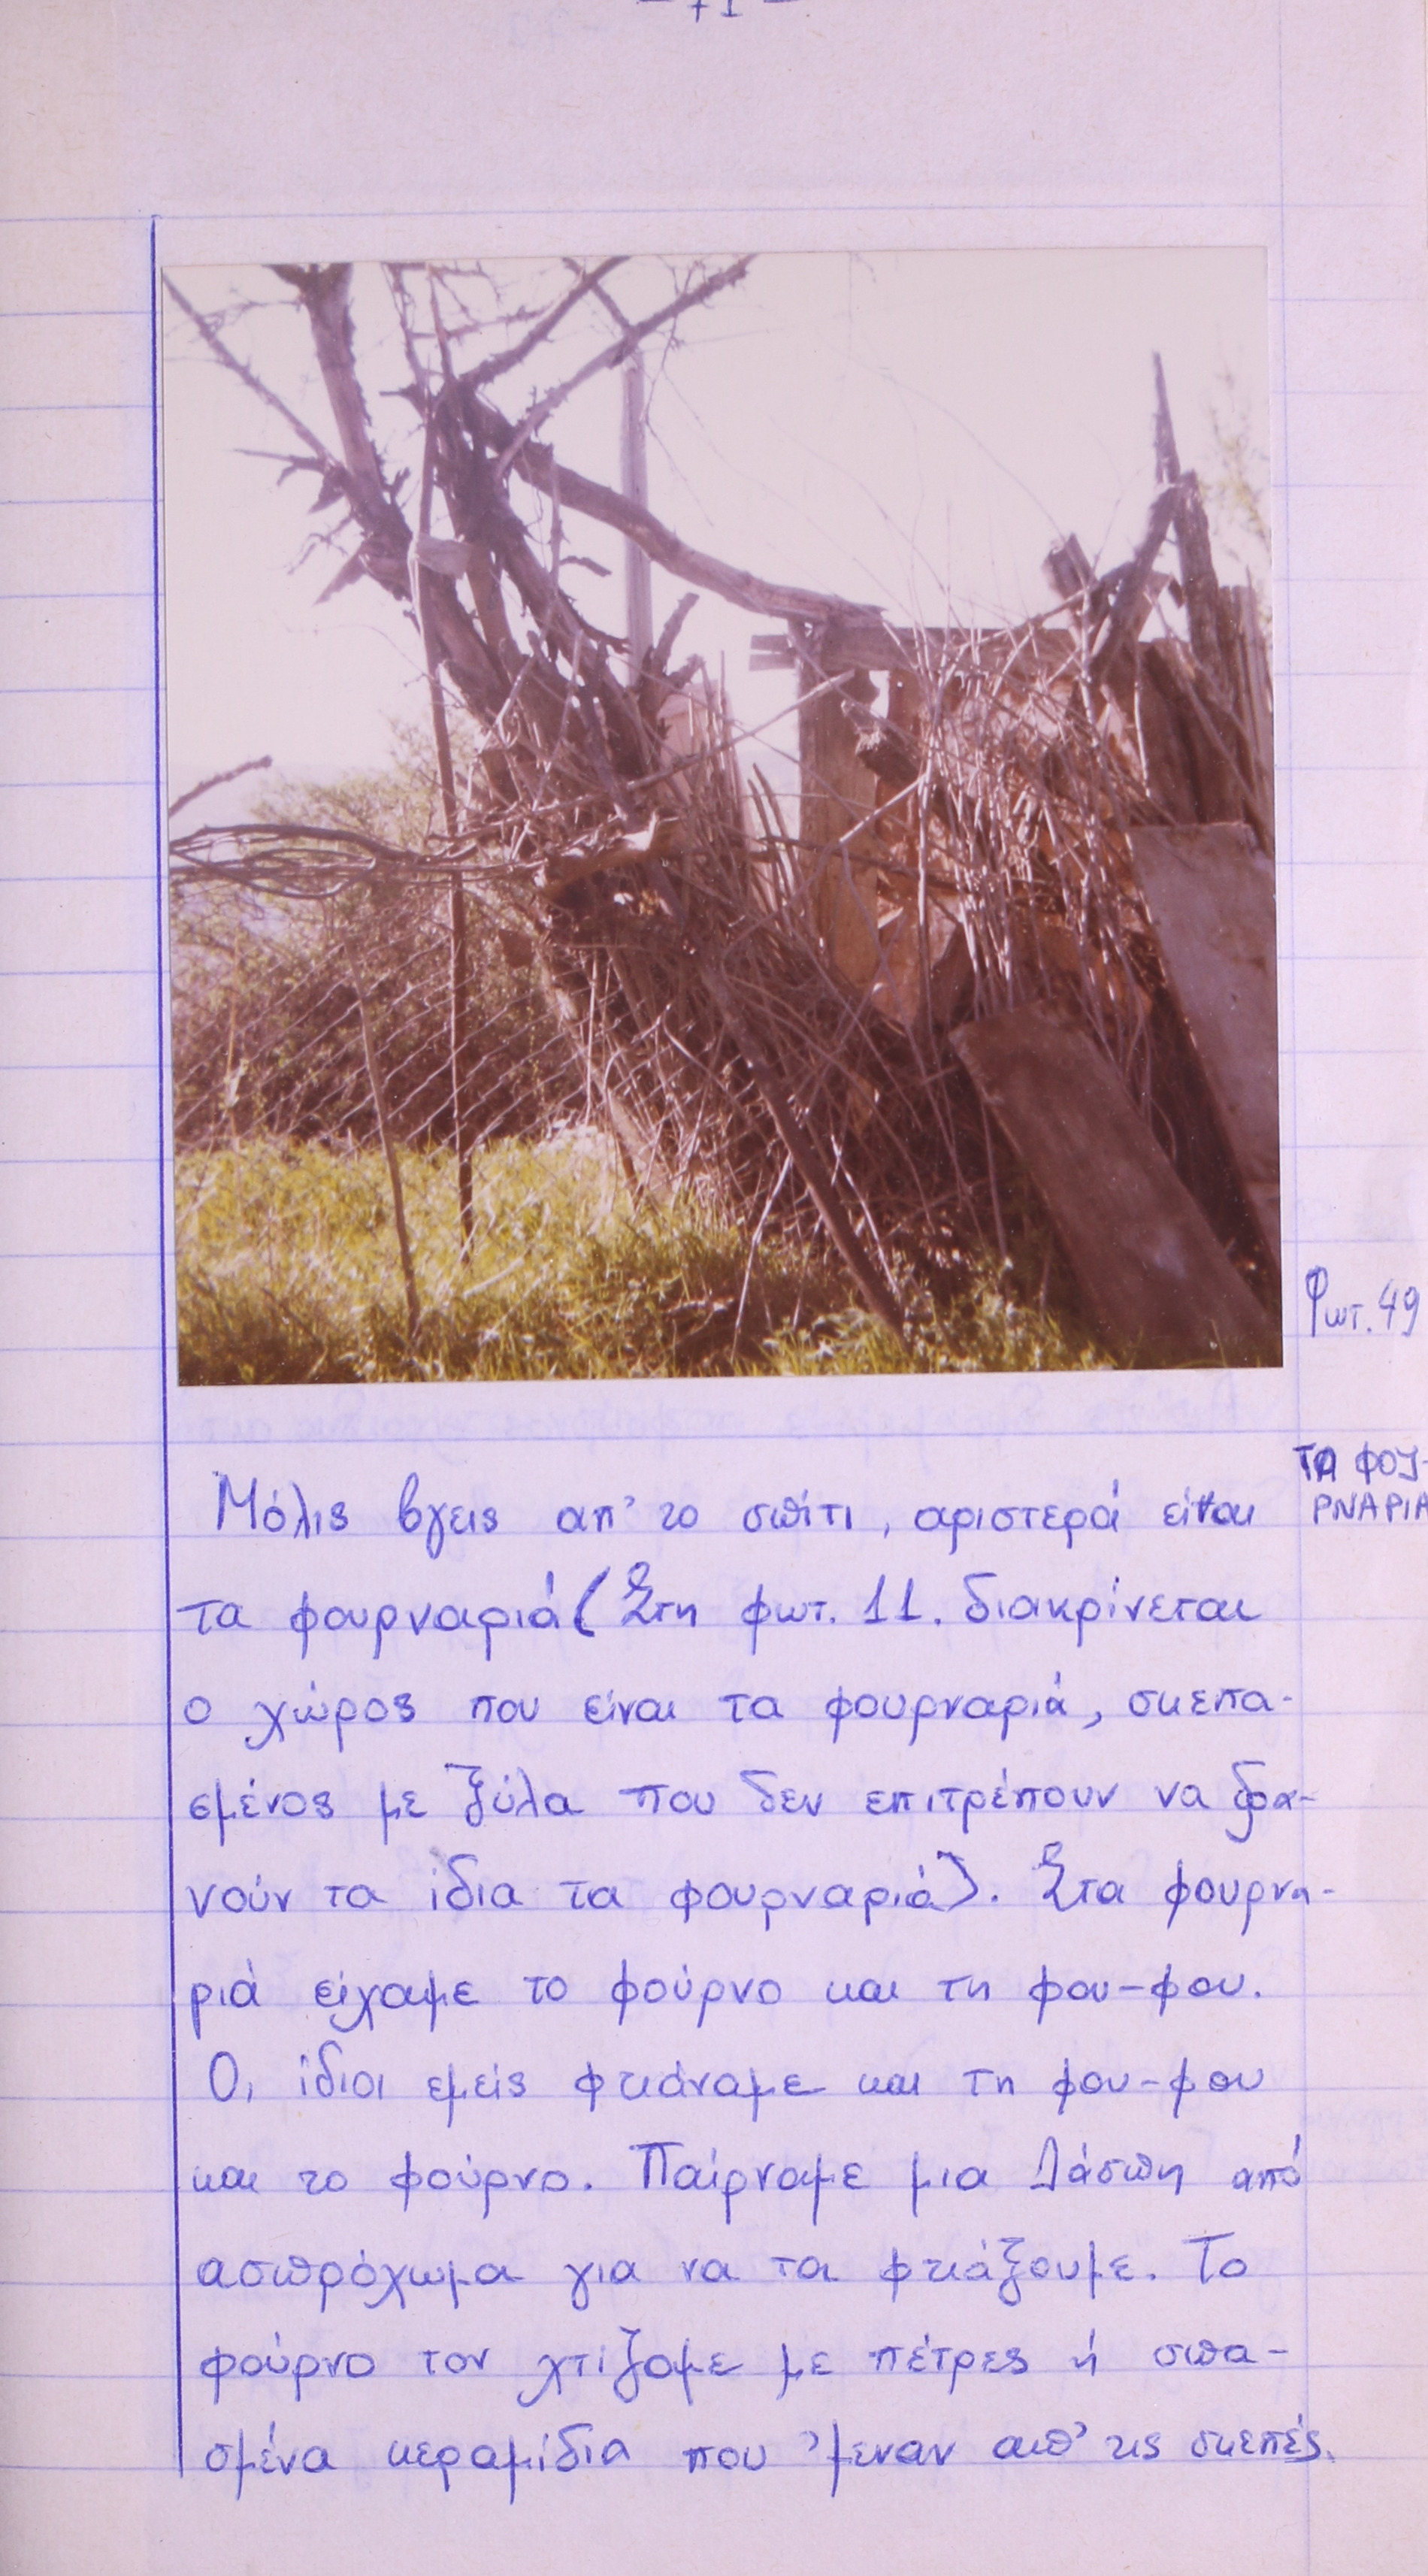 - 71 -
Φωτ. 49
ΤΑ ΦΟΥ-
ΡΝΑΡΙΑ
Μόλις βγεις απ' το σπίτι, αριστερά είναι
τα φουρναριά (Στη φωτ. 11. διακρίνεται
ο χώρος που είναι τα φουρναριά, σκεπα-
σμένος με ξύλα που δεν επιτρέπουν να φα-
νούν τα ίδια τα φουρναριά). Στα φουρνα-
ριά είχαμε το φούρνο και τη φου-φου.
Οι ίδιοι εμείς φτιάναμε και τη φου-φου
και το φούρνο. Παίρναμε μια λάσπη από
ασπρόχωμα για να τα φτιάξουμε. Το
φούρνο τον χτίζαμε με πέτρες ή σπα-
σμένα κεραμίδια που 'μεναν απ' τις σκεπές.